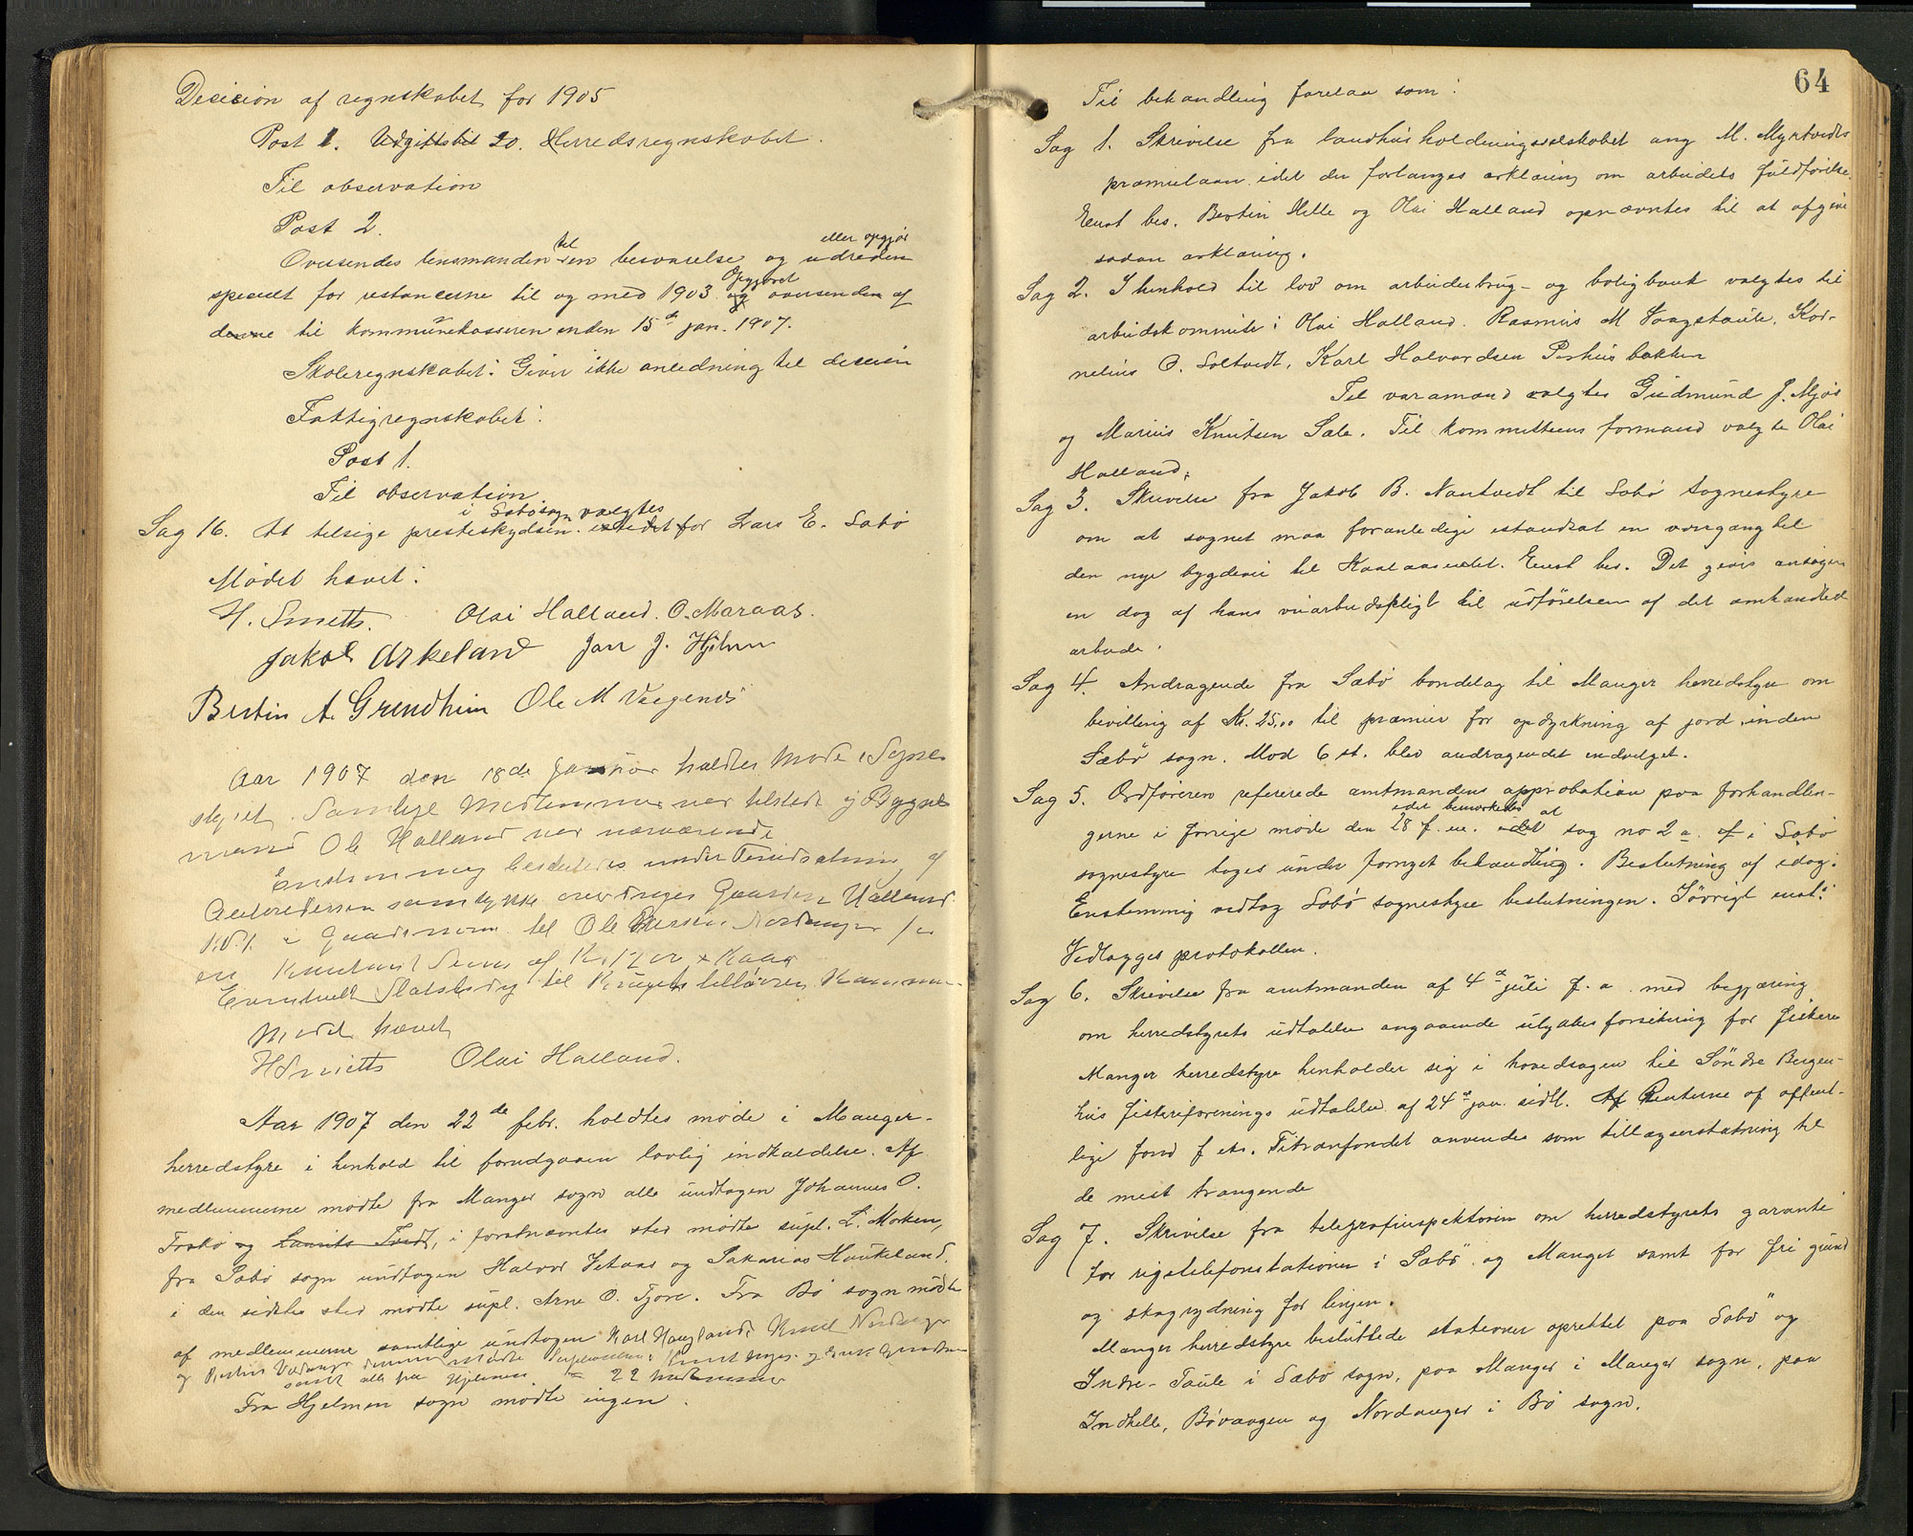 Decision af regnskabet for 1905
Post 1. Udgiftsbil 20. Herredsregnskabet.
Til observation
Post 2.
til eller opgjør
Oversendes lensmanden en besvarelse og udreden
Opgjøret
specielt for restancerne til og med 1903 og oversendes af
denne til kommunekasseren inden 15de jan. 1907.
Skoleregnskabet: Giver ikke anledning til decision
Fattigregnskabet:
Post 1.
Til observation
i Sæbø sogn valgtes
Sag 16. At tilsige presteskydsen istedet for Lars E. Sæbø
Mødet hævet:
H. Smetts. Olai Halland. O. Maraas.
Jakob Askeland
Bertin A. Grundheim Ole M
Aar 1907 den 18de januar holdtes Møde i Sogne-
styret. Samtlige Medlemmer var tilstede
mand Ole Halland var nærværende
Enstemmig besluttedes under
samtykke Gaarden Halland
til Ole
af Kr.
Eventuelt til Kommun-
Mødet hævet
H Smetts Olai Halland.
Aar 1907 den 22de febr. holdtes møde i Manger-
herredstyre i henhold til forudgaaen lovlig indkaldelse. Af
medlemmerne mødte fra Manger sogn alle undtagen Johannes O.
Toskø og Laurits Tvedt, i førstnævntes sted mødte supl. L. Morken,
fra Sæbø sogn undtagen Halvor Vetaas og Sakarias Haukeland.
i den sidstes sted mødte supl. Arne O. Fjore. Fra Bø sogn mødte
af medlemmerne samtlige undtagen Karl Hougland, Knut
og Bertin mødte
samt alle fra Hjelmen. 22 medlemmer
Fra Hjelmen sogn mødte ingen.
64
Til behandling forelaa som:
Sag 1. Skrivelse fra landhusholdningsselskabet ang M. Myrtvedts
præmielaan idet der forlanges erklæring om arbeidets fuldførelse.
Enst bes. Bertin Helle og Olai Halland opnævntes til at afgive
sådan erklæring.
Sag 2. I henhold til lov om arbeiderbrug- og boligbank valgtes til
arbeidskommite: Olai Halland. Rasmus M Vaagstaule, Kor-
nelius O. Soltvedt, Karl Halvordsen Pershusbakken
Til varamænd valgtes Gudmund J. Mjøs
og Marius Knutsen Sæle. Til kommitteens formand valgte Olai
Halland.
Sag 3. Skrivelse fra Jakob B. Nautvedt til Sæbø sognestyre
om at sognet maa foranledige istandsat en overgang til
den nye bygdevei til Kaalaaseidet. Enst bes. Det gives ansøgeren
en dag af hans veiarbeidspligt til udførelsen af det omhandlede
arbeide.
Sag 4. Andragende fra Sæbø bondelag til Manger herredstyre om
bevilling af Kr. 25,00 til præmier for opdyrkning af jord inden
Sæbø sogn. Mod 6 st. blev andragendet indvilget.
Sag 5. Ordføreren refererede amtmandens approbation paa forhandlin-
idet bemærkedes at
gerne i forrige møde den 28 f. m. idet sag no 2 a. af i Sæbø
sognestyre toges under fornyet behandling. Beslutning af idag:
Enstemmig vedtog Sæbø sognestyre beslutningen. Iøvrigt enst:
Vedlægges protokollen.
Sag 6. Skrivelse fra amtmanden af 4de juli f. a. med begjæring
om herredstyrets udtalelse angaaende ulykkesforsikring for fiskere
Manger herredstyre henholder sig i hovedsagen til Søndre Bergen-
hus fiskeriforenings udtalelse af 24de jan. sidtl. Af Renterne af offent-
lige fond f eks. Titranfondet anvendes som tillægserstatning til
de mest trængende
Sag 7. Skrivelse fra telegrafinspektøren om herredstyrets garanti
for rigstelefonstationer i Sæbø og Manger samt for fri grund
og skogrydning for linjen.
Manger herredstyre besluttede stationer oprettet paa Sæbø og
Indre-Taule i Sæbø sogn, paa Manger i Manger sogn, paa
Indhelle, Bøvaagen og Nordanger i Bø sogn.